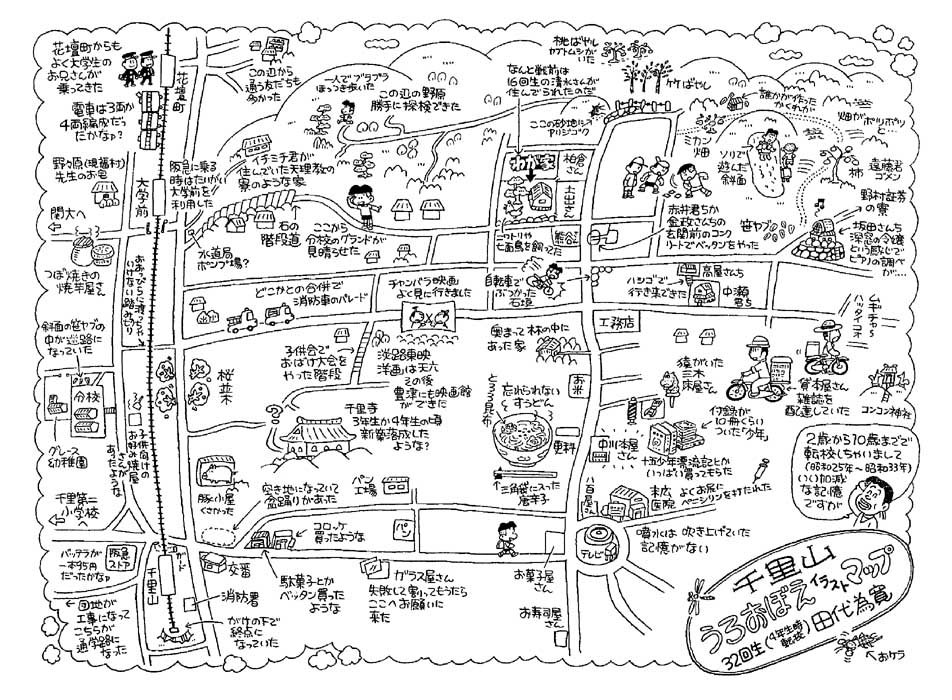 花壇町からも
よく大学生の
お兄さんが
乗ってきた
花壇町
電車は3両か
4両編成だっ
たかなぁ?
この辺から
通う友だちも
多かった
一人でブラブラ
ほっつき歩いた
この辺の野原
勝手に探検できた
桃ばやし
カブトムシがいた
なんと戦前は
16回生の清水さんが
住んでられたのだ
竹ばやし
ここの砂地に
アリジゴク
誰かが作った
かくれ家
畑がポツポツ
と…
ミカン
畑
ソリで
遊んだ
斜面
柿
遠藤君
ち
野村証券
の寮
坂田さんち
深窓の令嬢
という感じで
ピアノの調べ
が…
野々原(現舊村)
先生のお宅
大学前
阪急に乗る
時はたいがい
大学前を
利用した
イチミチ君が
住んでいた天理教の
寮のような家
わが家
柏倉
さん
土田さん
熊谷さん
ニワトリや
七面鳥を飼ってた
赤井君ちか
金政さんちの
玄関前のコンク
リートでベッタンをやった
笹ヤブ
関大へ
石の
階段道
水道局
ポンプ場?
ここから
分校のグランドが
見晴らせた
つぼ焼きの
焼芋屋さん
おおっぴらに渡っちゃ
いけない踏みきり
どこかとの合併で
消防車のパレード
チャンバラ映画
よく見に行きました
自転車で
ぶつかった
石垣
ハシゴで
行き来できた
高屋さんち
中瀬
君ち
ムギチャラ
ハッタイコネ
斜面の笹ヤブの
中が迷路に
なっていた
分校
グレース
幼稚園
桜並木
子供会で
おばけ大会を
やった階段
淡路東映
洋画は天六
その後
豊津にも映画館
ができた
奥まって林の中に
あった家
工務店
お米
猿がいた
三木
床屋さん
貸本屋さん
雑誌を
配達していた
コンコン神社
お子様向けの
お好み焼屋
さんが
あったような
千里寺
3年生か4年生の頃
新築落成した
ような?
とろろ昆布
忘れられない
すうどん
更科
三角袋に入った
唐辛子
中川本屋
さん
付録が
10冊くらい
ついた「少年」
十五少年漂流記とか
いっぱい買ってもらった
千里第二
小学校へ
豚小屋
くさかった
空き地になっていて
盆踊りがあった
パン
工場
パン
コロッケ
買ったような
八百屋さん
末広
医院
よくお尻に
ペニシリンを打たれた
2歳から10歳まで
転校しちゃいまして
(昭和25年〜昭和33年)
いい加減
な記憶
ですが
バッテラが
一本95円
だったかなァ
阪急
ストア
ガード
千里山
交番
消防署
駄菓子とか
ベッタン買った
ような
ガラス屋さん
失敗して割ってもうたら
ここへお願いに
来た
お菓子屋
さん
お寿司屋
さん
テレビ
噴水は吹き上げていた
記憶がない
団地が
工事になって
こちらが
通学路に
なった
がけの下で
終点に
なっていた
千里山
うろおぼえイラストマップ
32回生(4年生時転校)田代為寛
おケラ